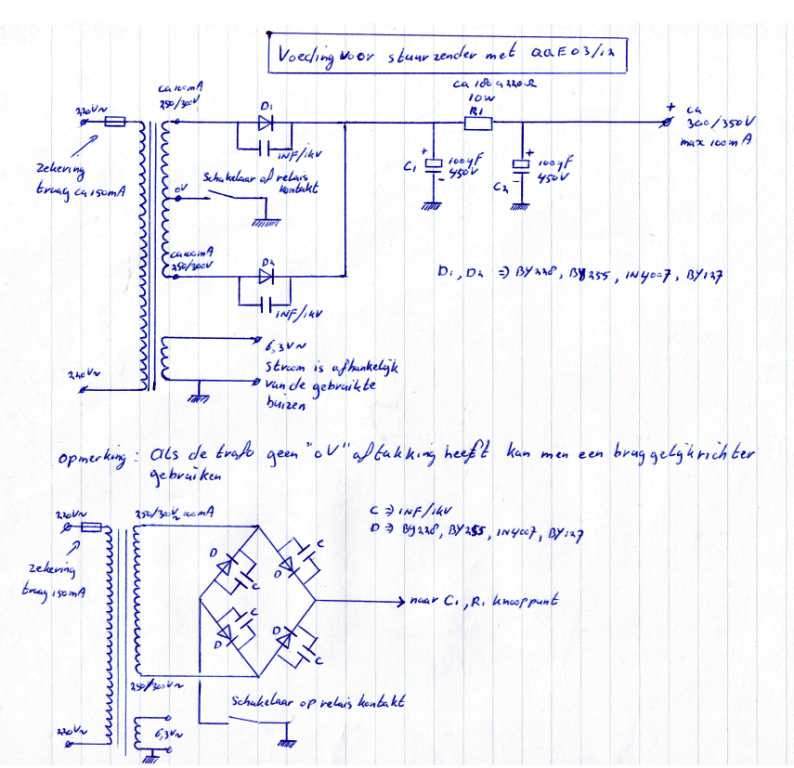 Voeding voor stuurzender met QQE 03/12
ca 180 a 220Ω
10W
R1
ca 100mA
250/300V
220V~
D1
1NF/1kV
zekering
traag ca 150mA
0V
Schakelaar of relais
kontakt
+
C1
100µF
450V
-
+
C2
100µF
450V
-
+ ca
300/350V
max 100mA
ca 100mA
250/300V
D2
1NF/1kV
D1, D2 => BY228, BY255, 1N4007, BY127
6,3V~
stroom is afhankelijk
van de gebruikte
buizen
220V~
opmerking: Als de trafo geen "0V" aftakking heeft kan men een bruggelijkrichter
gebruiken
220V~
250/300V~ 100mA
C => 1NF/1kV
D => BY228, BY255, 1N4007, BY127
zekering
traag 150mA
D
C
D
C
D
C
D
C
naar C1, R1 knooppunt
250/300V~
Schakelaar op relais kontakt
220V~
6,3V~